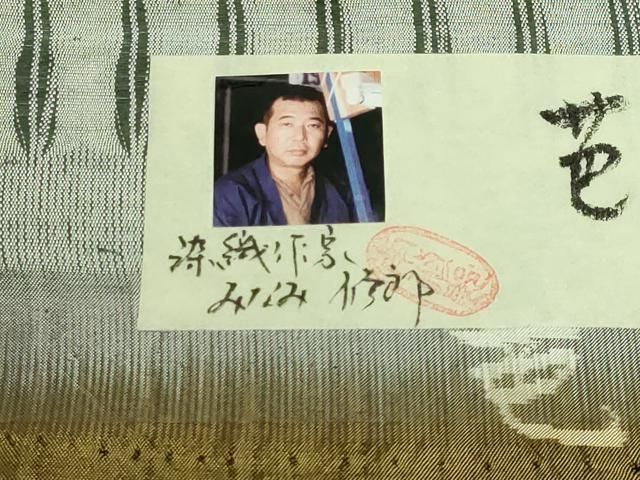 芭
染織作家
みなみ 修郎